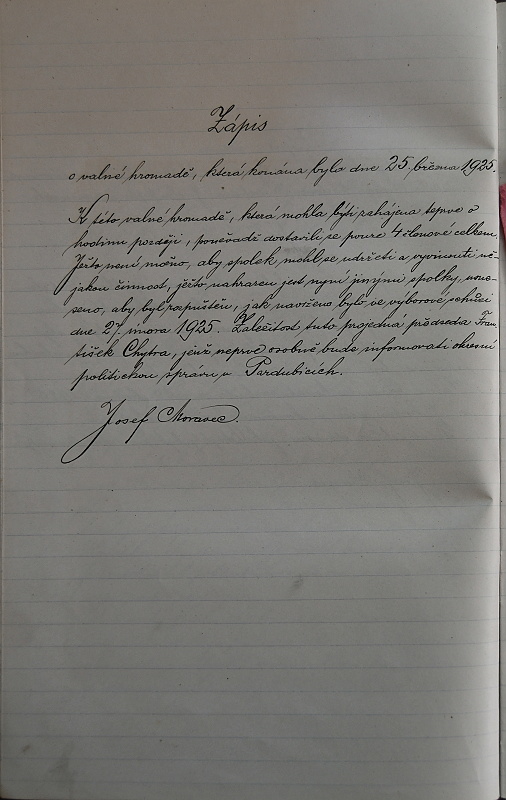 Zápis
o valné hromadě, která konána byla dne 25. března 1925.
K této valné hromadě, která mohla býti zahájena teprve o
hodinu později, poněvadž dostavili se pouze 4 členové celkem.
Ježto není možno, aby spolek mohl se udržeti a vyvinouti ně-
jakou činnost, ježto nahrazen jest nyní jinými spolky, usne-
seno, aby byl rozpuštěn, jak navrženo bylo ve výborové schůzi
dne 27. února 1925. Záležitost tuto projedná předseda Fran-
tišek Chytra, jenž neprve osobně bude informovati okresní
politickou správu v Pardubicích.
Josef Moravec.